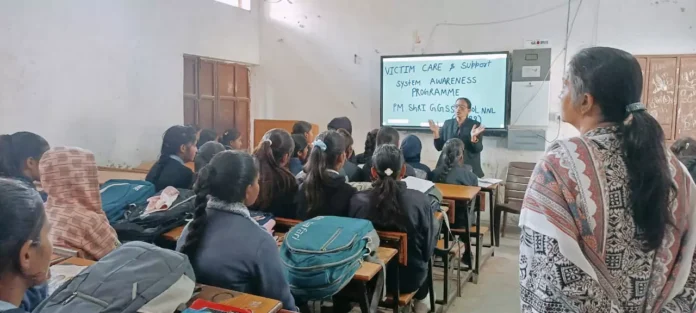 VICTIM CARE & Support
System AWARENESS
PROGRAMME
PM SHRI G.G.S.S NNL
Safari